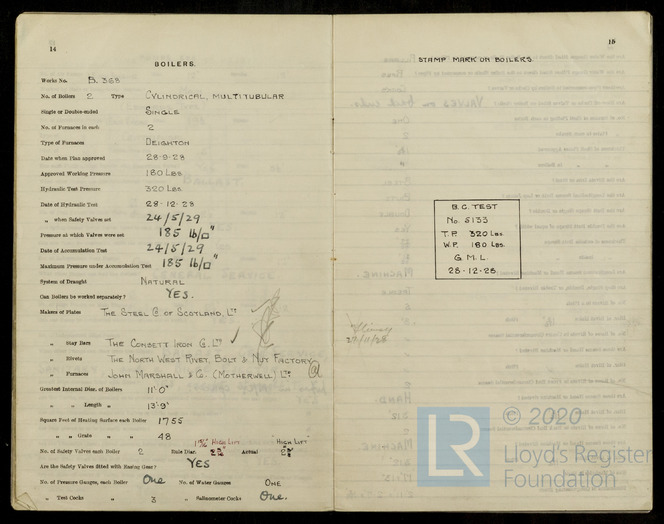 14
BOILERS.
Works No. B. 368
No. of Boilers 2 Type CYLINDRICAL, MULTITUBULAR
Single or Double-ended SINGLE
No. of Furnaces in each 2
Type of Furnaces DEIGHTON
Date when Plan approved 28-9-28
Approved Working Pressure 180 Lbs
Hydraulic Test Pressure 320 Lbs
Date of Hydraulic Test 28-12-28
„ when Safety Valves set 24/5/29
Pressure at which Valves were set 185 lb/□"
Date of Accumulation Test 24/5/29
Maximum Pressure under Accumulation Test 185 lb/□"
System of Draught NATURAL
Can Boilers be worked separately? YES.
Makers of Plates THE STEEL Co. OF SCOTLAND, LTD
„ Stay Bars THE CONSETT IRON Co. LTD
„ Rivets THE NORTH WEST RIVET, BOLT & NUT FACTORY
„ Furnaces JOHN MARSHALL & Co. (MOTHERWELL) LTD
Greatest Internal Diam. of Boilers 11'-0"
„ „ Length „ 13'-9"
Square Feet of Heating Surface each Boiler 1755
„ „ Grate „ „ 48
No. of Safety Valves each Boiler 2 Rule Diam. HIGH LIFT Actual "HIGH LIFT"
Are the Safety Valves fitted with Easing Gear? YES
No. of Pressure Gauges, each Boiler One No. of Water Gauges ONE
„ Test Cocks „ 3 „ Salinometer Cocks One.
15
STAMP MARK ON BOILERS
B.C. TEST
No. 5133
T.P. 320 Lbs.
W.P. 180 Lbs.
G.M.L.
28-12-28
27/11/28
© 2020
LR
Lloyd's Register
Foundation